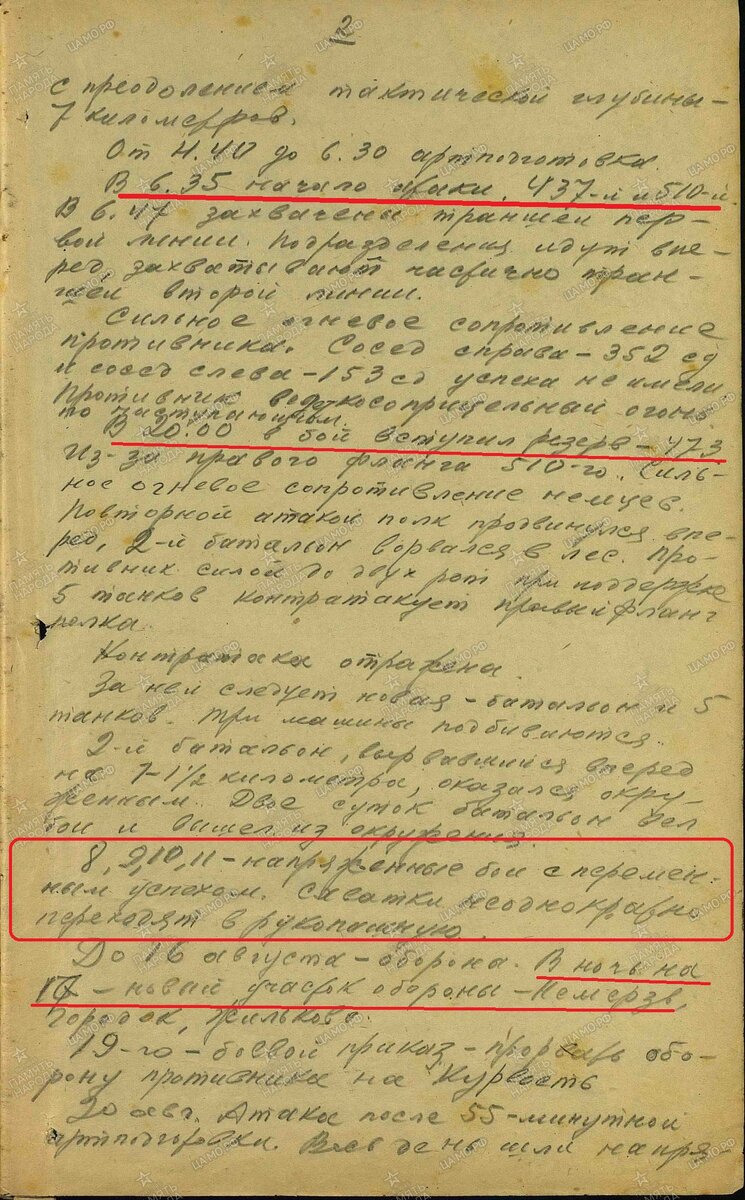 2
с преодолением тактической глубины –
7 километров.
От 4.40 до 6.30 артподготовка
В 6.35 начало атаки. 437-й и 510-й.
В 6.47 захвачены траншеи пер-
вой линии. Подразделения идут впе-
ред, захватывают частично тран-
шеи второй линии.
Сильное огневое сопротивление
противника. Сосед справа – 352 сд
и сосед слева – 153 сд успеха не имели
Противник ведет огонь
по наступающим.
В 20.00 в бой вступил резерв – 473
Из-за правого фланга 510-го. Силь-
ное огневое сопротивление немцев.
Повторной атакой полк продвинулся впе-
ред, 2-й батальон ворвался в лес. Про-
тивник силой до двух рот при поддержке
5 танков контратакует правый фланг
полка.
Контратака отражена.
За ней следует новая – батальон и 5
танков. Три машины подбиваются.
2-й батальон, вырвавшийся вперед
на 1-1½ километра, оказался окру-
женным. Двое суток батальон вел
бой и вышел из окружения.
8, 9, 10, 11 – напряженные бои с перемен-
ным успехом. Схватки неоднократно
переходят в рукопашную.
До 16 августа – оборона. В ночь на
17 – новый участок обороны – Немерзь,
Городок, Жильково.
19-го – боевой приказ – прорвать обо-
рону противника на
20 авг. Атака после 55-минутной
артподготовки. Весь день шли напря-
ПАМЯТЬ НАРОДА
ЦАМО.РФ